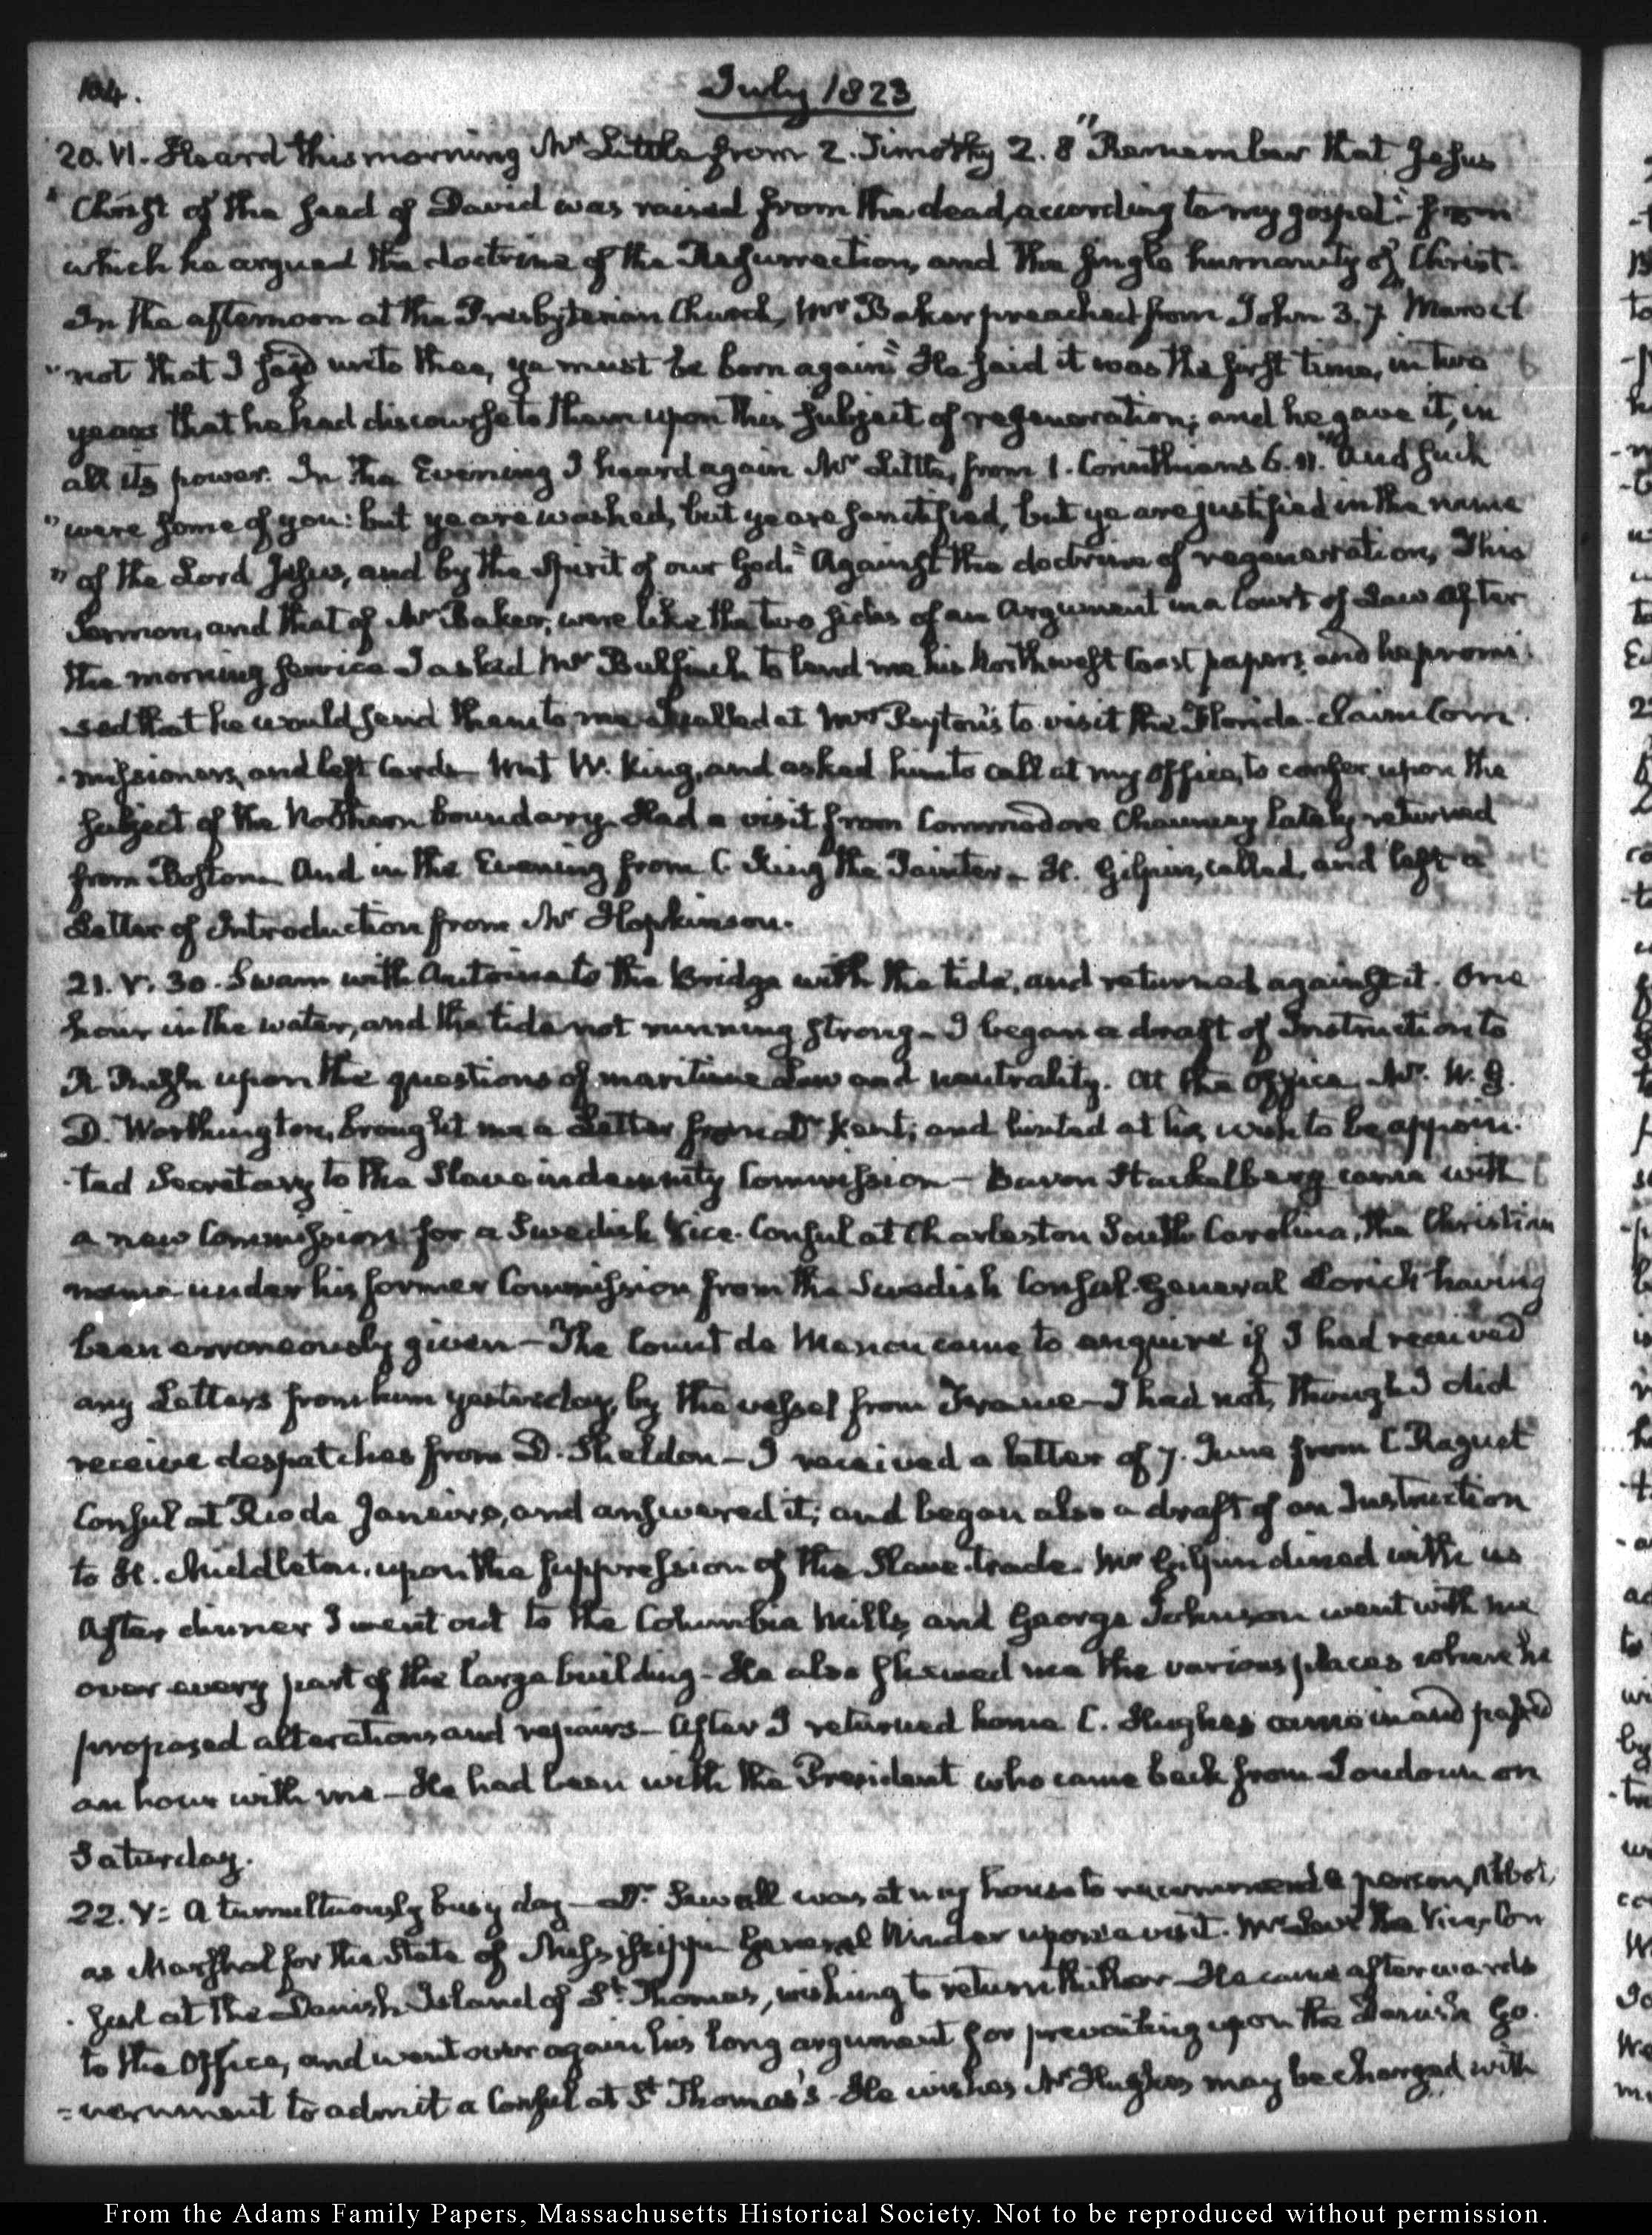 104.
July 1823
20. VI. Heard this morning Mr Little from 2. Timothy 2. 8 "Remember that Jesus
"Christ of the seed of David was raised from the dead, according to my gospel"- from
which he argued the doctrine of the Resurrection, and the single humanity of Christ-
In the afternoon at the Presbyterian Church, Mr Baker preached from John 3. 7 Marvel
"not that I said unto thee, ye must be born again" He said it was the first time, in two
years that he had discourse to them upon this subject of regeneration; and he gave it, in
all its power. In the Evening I heard again Mr Little, from 1. Corinthians 6. 11. "And such
"were some of you: but ye are washed, but ye are sanctified, but ye are justified in the name
"of the Lord Jesus, and by the spirit of our God." Against the doctrine of regeneration, This
Sermon, and that of Mr Baker, were like the two sides of an Argument in a Court of Law After
the morning service I asked Mr Bulfinch to lend me his Northwest Coast papers, and he promi-
sed that he would send them to me. I called at Mrs Peyton's to visit the Florida-claim Com
-missioners, and left Cards- Met W. King, and asked him to call at my Office, to confer upon the
subject of the Northern boundary- Had a visit from Commodore Chauncey lately returned
from Boston- And in the Evening from C King the Painter- H. Gilpin, called, and left a
Letter of Introduction from Mr Hopkinson.
21. V. 30. Swam with Antoine to the Bridge with the tide, and returned against it. One
hour in the water, and the tide not running strong- I began a draft of Instruction to
R Rush upon the questions of maritime Law and neutrality. At the Office, Mr. W. G.
D. Worthington, brought me a Letter from Dr Kent; and hinted at his wish to be appoin-
-ted Secretary to the Slave indemnity Commission- Baron Stackelberg came with
a new Commission for a Swedish Vice-Consul at Charleston South-Carolina, the Christian
name under his former Commission from the Swedish Consul-General Lorich having
been erroneously given- The Count de Menou came to enquire if I had received
any Letters from him yesterday, by the vessel from France- I had not, though I did
receive despatches from D. Sheldon- I received a letter of 7. June from C Raguet
Consul at Rio de Janeiro, and answered it; and began also a draft of an Instruction
to H. Middleton, upon the suppression of the Slave-trade. Mr Gilpin dined with us
After dinner I went out to the Columbia Mills, and George Johnson went with me
over every part of the large building- He also shewed me the various places where he
proposed alterations and repairs- After I returned home C. Hughes came in and passed
an hour with me- He had been with the President who came back from Loudoun on
Saturday.
22. V: A tumultuously busy day- Dr Sewall was at my house to recommend a person, Abbot,
as Marshal for the State of Mississippi General Winder upon a visit. Mr Levy the Vice-Con
-sul at the Danish Island of St. Thomas, wishing to return thither- He came afterwards
to the Office, and went over again his long argument for prevailing upon the Danish Go-
=vernment to admit a Consul at St Thomas's- He wishes Mr Hughes may be charged with
From the Adams Family Papers, Massachusetts Historical Society. Not to be reproduced without permission.